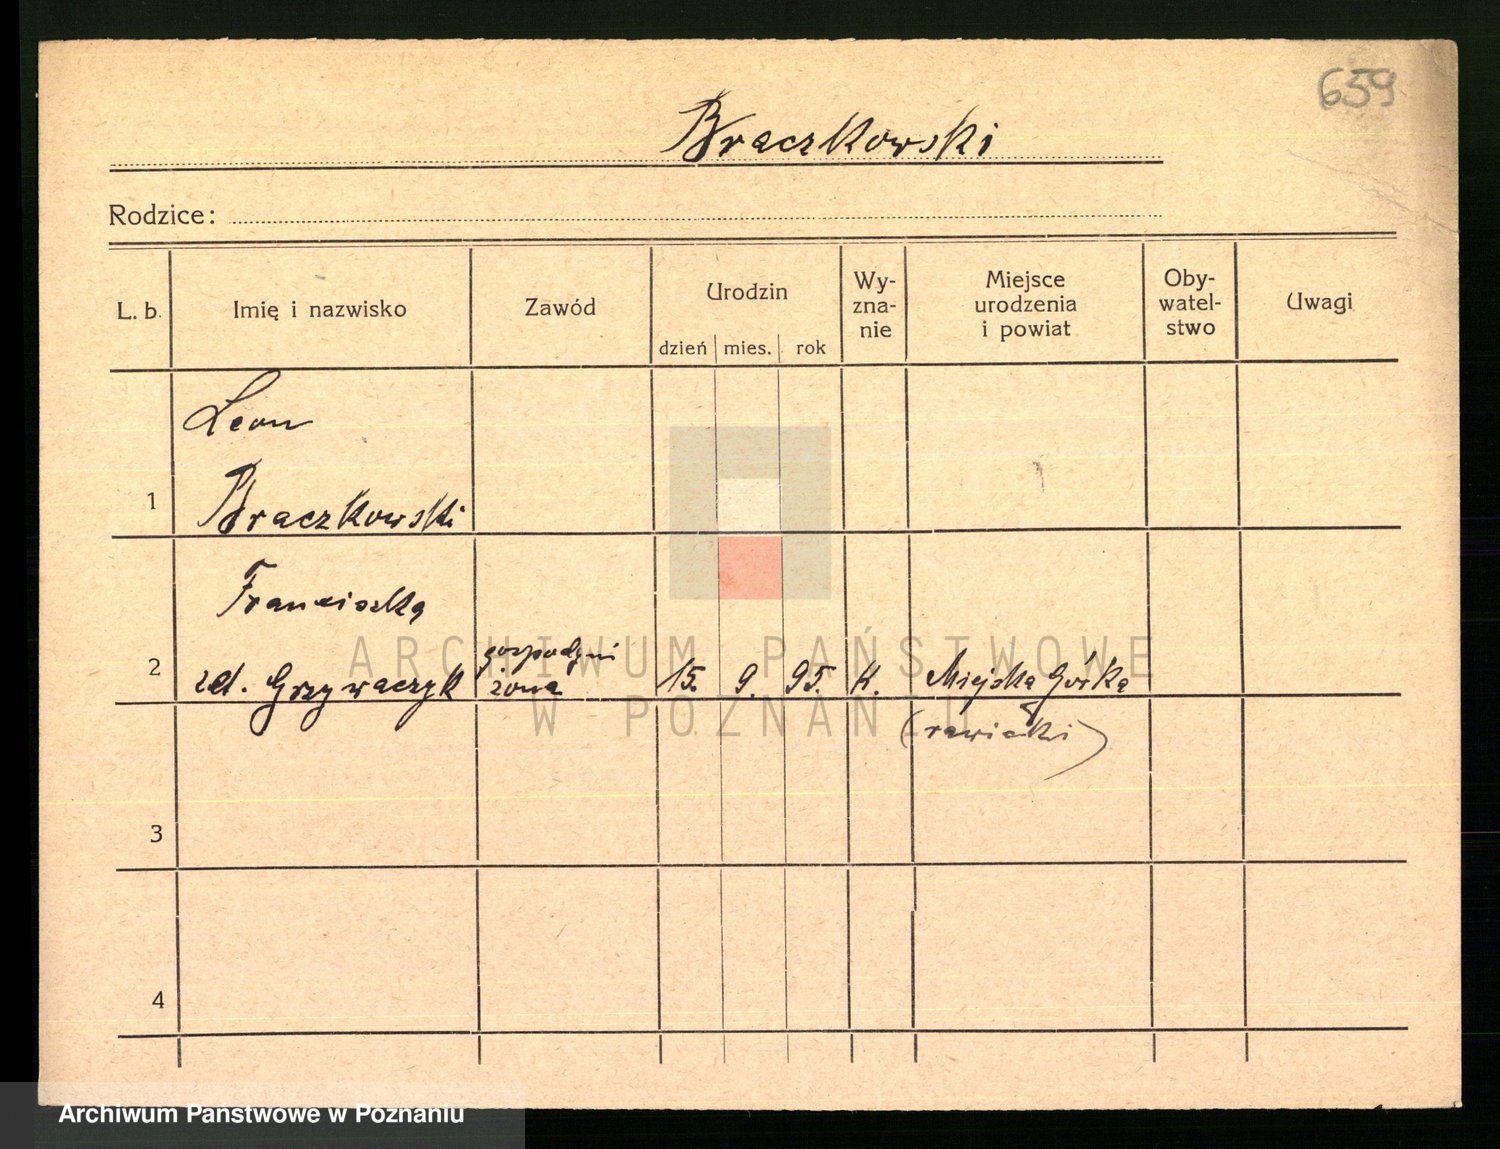 659
Braczkowski
Rodzice:
L. b. Imię i nazwisko Zawód Urodzin Wy-zna-nie Miejsce urodzenia i powiat Oby-watel-stwo Uwagi
dzień mies. rok
Leon
1 Braczkowski
Franciszka
gospodyni
2 zd. Grzywaczyk żona 15. 9. 95. K. Miejska Górka
(rawicki)
3
4
ARCHIWUM PAŃSTWOWE
W POZNANIU
Archiwum Państwowe w Poznaniu